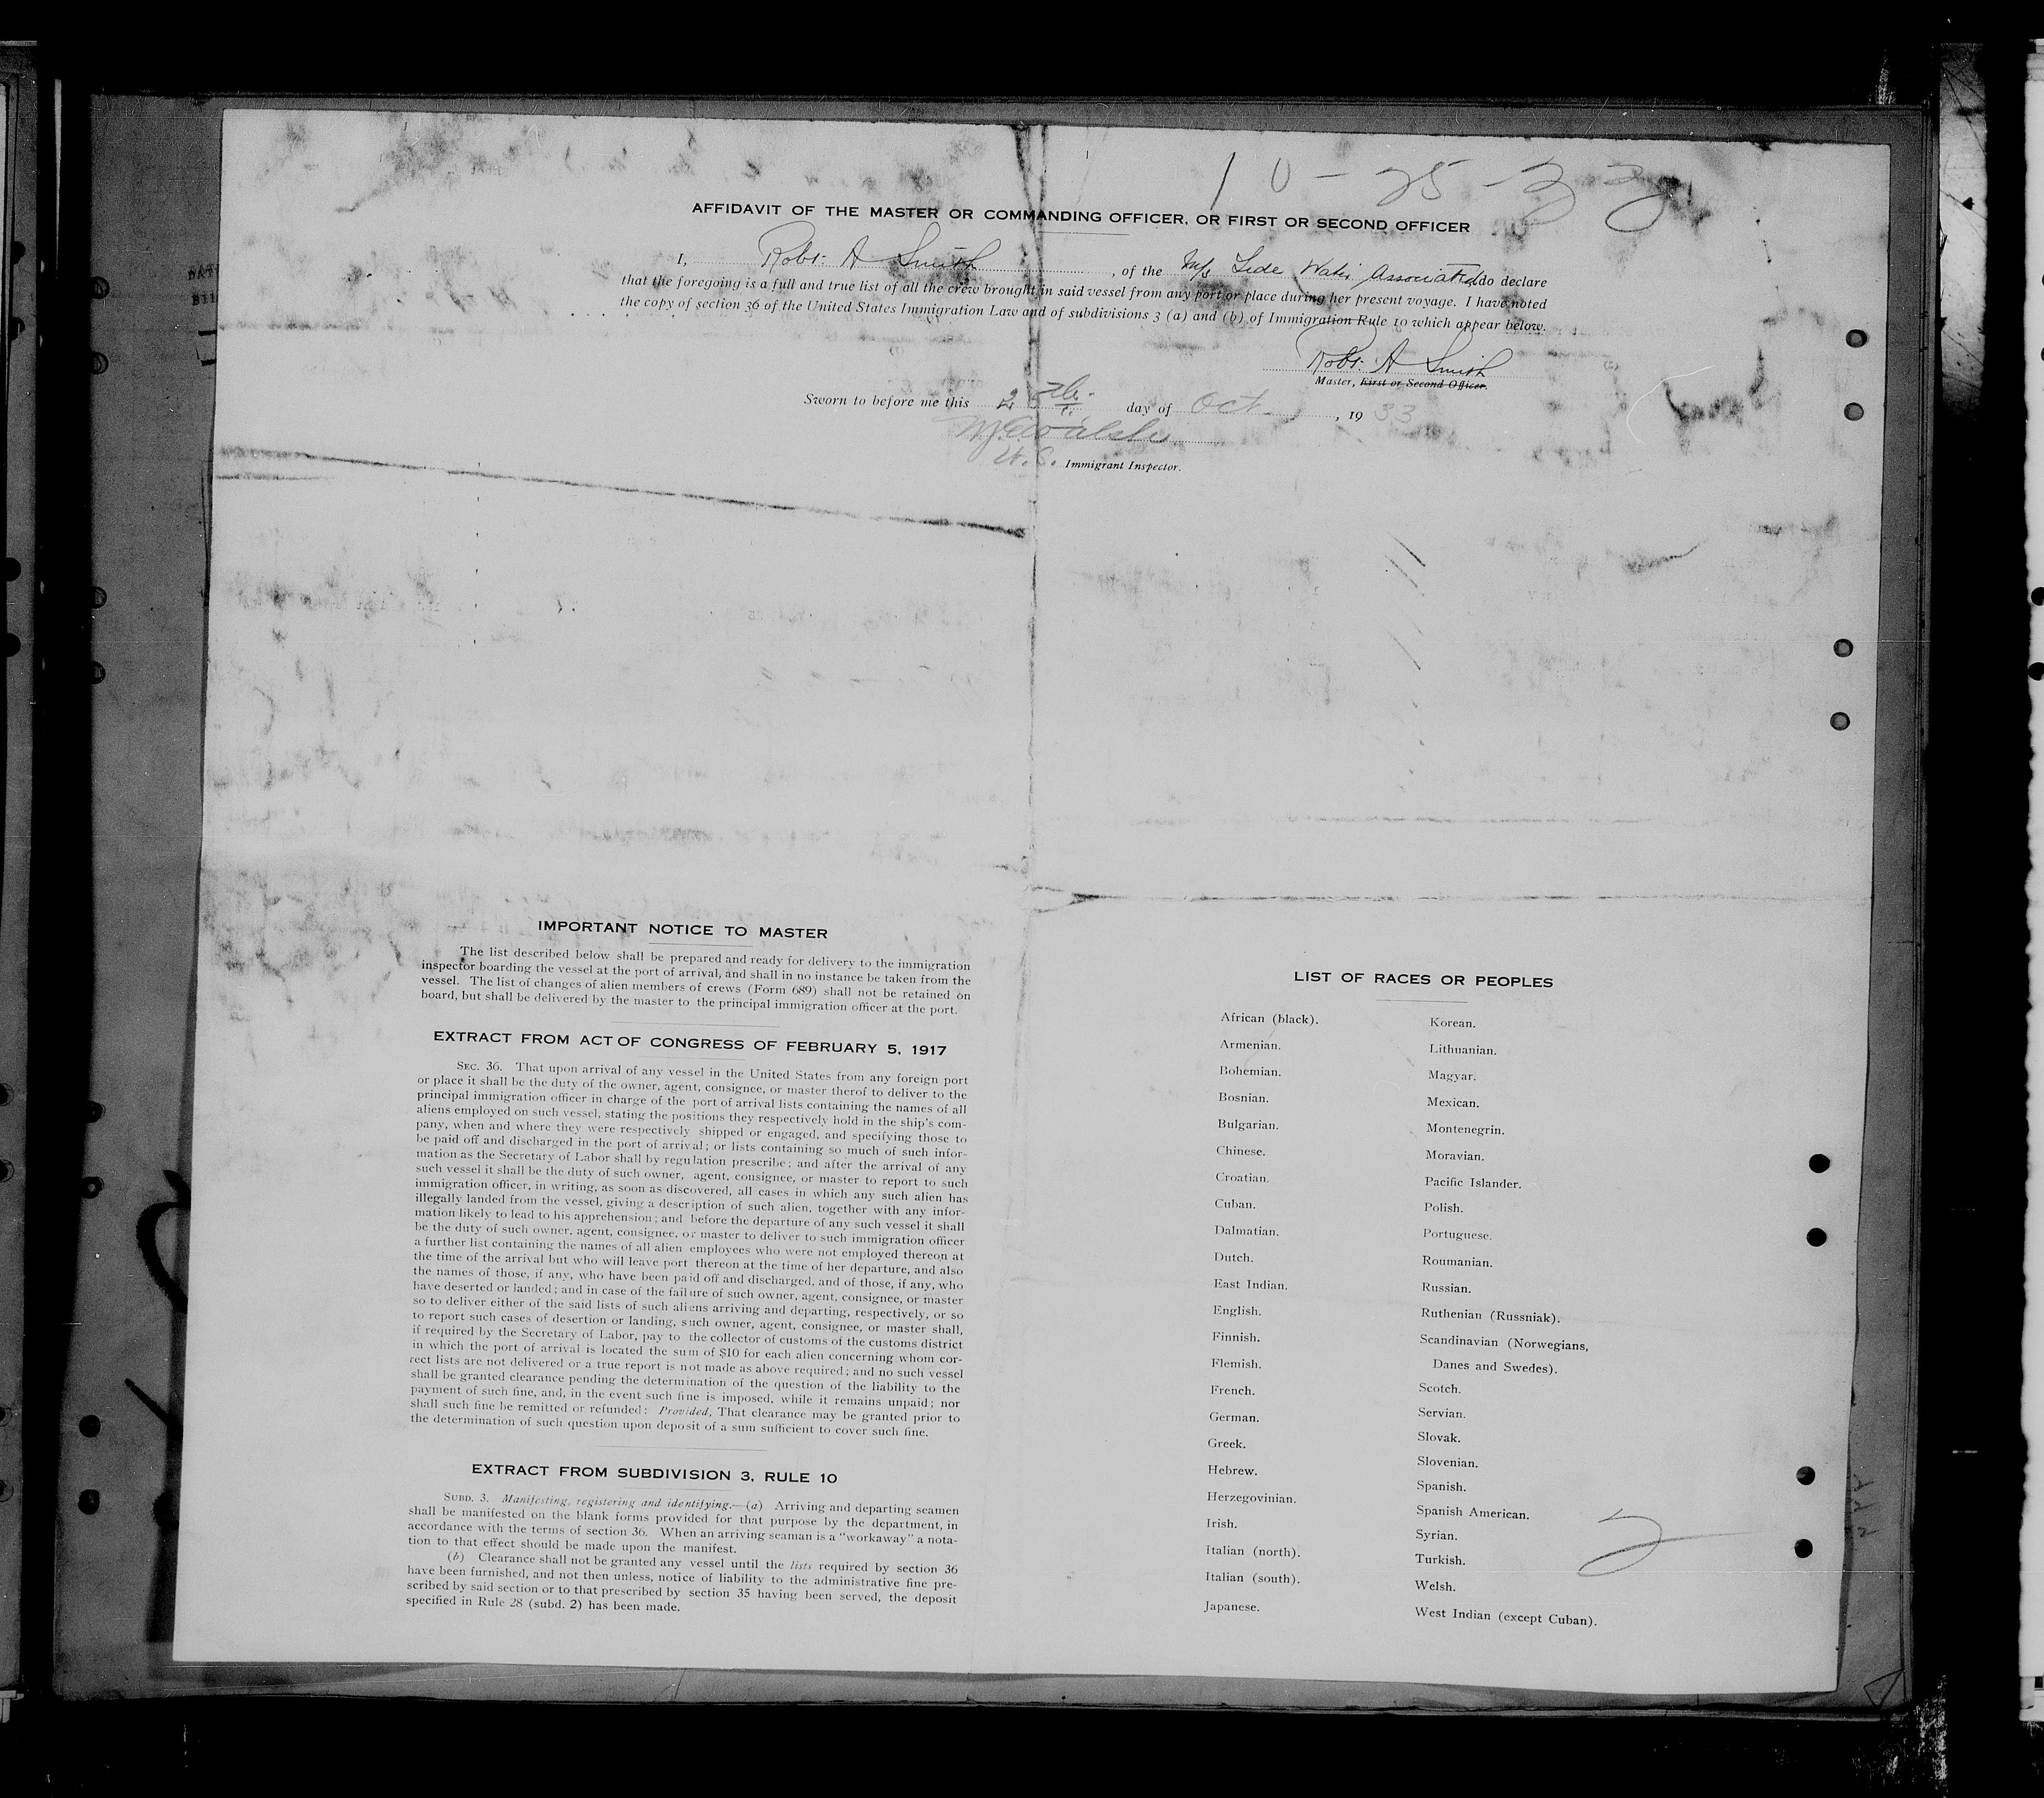 10-25-33
AFFIDAVIT OF THE MASTER OR COMMANDING OFFICER, OR FIRST OR SECOND OFFICER
I, Robt. A Smith, of the M/s Tide Water Associated do declare
that the foregoing is a full and true list of all the crew brought in said vessel from any port or place during her present voyage. I have noted
the copy of section 36 of the United States Immigration Law and of subdivisions 3 (a) and (b) of Immigration Rule 10 which appear below.
Robt. A Smith
Master, First or Second Officer.
Sworn to before me this 25th day of Oct., 1933
Walsh
U.S. Immigrant Inspector.
IMPORTANT NOTICE TO MASTER
The list described below shall be prepared and ready for delivery to the immigration
inspector boarding the vessel at the port of arrival, and shall in no instance be taken from the
vessel. The list of changes of alien members of crews (Form 689) shall not be retained on
board, but shall be delivered by the master to the principal immigration officer at the port.
EXTRACT FROM ACT OF CONGRESS OF FEBRUARY 5, 1917
SEC. 36. That upon arrival of any vessel in the United States from any foreign port
or place it shall be the duty of the owner, agent, consignee, or master therof to deliver to the
principal immigration officer in charge of the port of arrival lists containing the names of all
aliens employed on such vessel, stating the positions they respectively hold in the ship's com-
pany, when and where they were respectively shipped or engaged, and specifying those to
be paid off and discharged in the port of arrival; or lists containing so much of such infor-
mation as the Secretary of Labor shall by regulation prescribe; and after the arrival of any
such vessel it shall be the duty of such owner, agent, consignee, or master to report to such
immigration officer, in writing, as soon as discovered, all cases in which any such alien has
illegally landed from the vessel, giving a description of such alien, together with any infor-
mation likely to lead to his apprehension; and before the departure of any such vessel it shall
be the duty of such owner, agent, consignee, or master to deliver to such immigration officer
a further list containing the names of all alien employees who were not employed thereon at
the time of the arrival but who will leave port thereon at the time of her departure, and also
the names of those, if any, who have been paid off and discharged, and of those, if any, who
have deserted or landed; and in case of the failure of such owner, agent, consignee, or master
so to deliver either of the said lists of such aliens arriving and departing, respectively, or so
to report such cases of desertion or landing, such owner, agent, consignee, or master shall,
if required by the Secretary of Labor, pay to the collector of customs of the customs district
in which the port of arrival is located the sum of $10 for each alien concerning whom cor-
rect lists are not delivered or a true report is not made as above required; and no such vessel
shall be granted clearance pending the determination of the question of the liability to the
payment of such fine, and, in the event such fine is imposed, while it remains unpaid; nor
shall such fine be remitted or refunded: Provided, That clearance may be granted prior to
the determination of such question upon deposit of a sum sufficient to cover such fine.
EXTRACT FROM SUBDIVISION 3, RULE 10
SUBD. 3. Manifesting, registering and identifying.—(a) Arriving and departing seamen
shall be manifested on the blank forms provided for that purpose by the department, in
accordance with the terms of section 36. When an arriving seaman is a "workaway" a nota-
tion to that effect should be made upon the manifest.
(b) Clearance shall not be granted any vessel until the lists required by section 36
have been furnished, and not then unless, notice of liability to the administrative fine pre-
scribed by said section or to that prescribed by section 35 having been served, the deposit
specified in Rule 28 (subd. 2) has been made.
LIST OF RACES OR PEOPLES
African (black).
Armenian.
Bohemian.
Bosnian.
Bulgarian.
Chinese.
Croatian.
Cuban.
Dalmatian.
Dutch.
East Indian.
English.
Finnish.
Flemish.
French.
German.
Greek.
Hebrew.
Herzegovinian.
Irish.
Italian (north).
Italian (south).
Japanese.
Korean.
Lithuanian.
Magyar.
Mexican.
Montenegrin.
Moravian.
Pacific Islander.
Polish.
Portuguese.
Roumanian.
Russian.
Ruthenian (Russniak).
Scandinavian (Norwegians,
Danes and Swedes).
Scotch.
Servian.
Slovak.
Slovenian.
Spanish.
Spanish American.
Syrian.
Turkish.
Welsh.
West Indian (except Cuban).
2